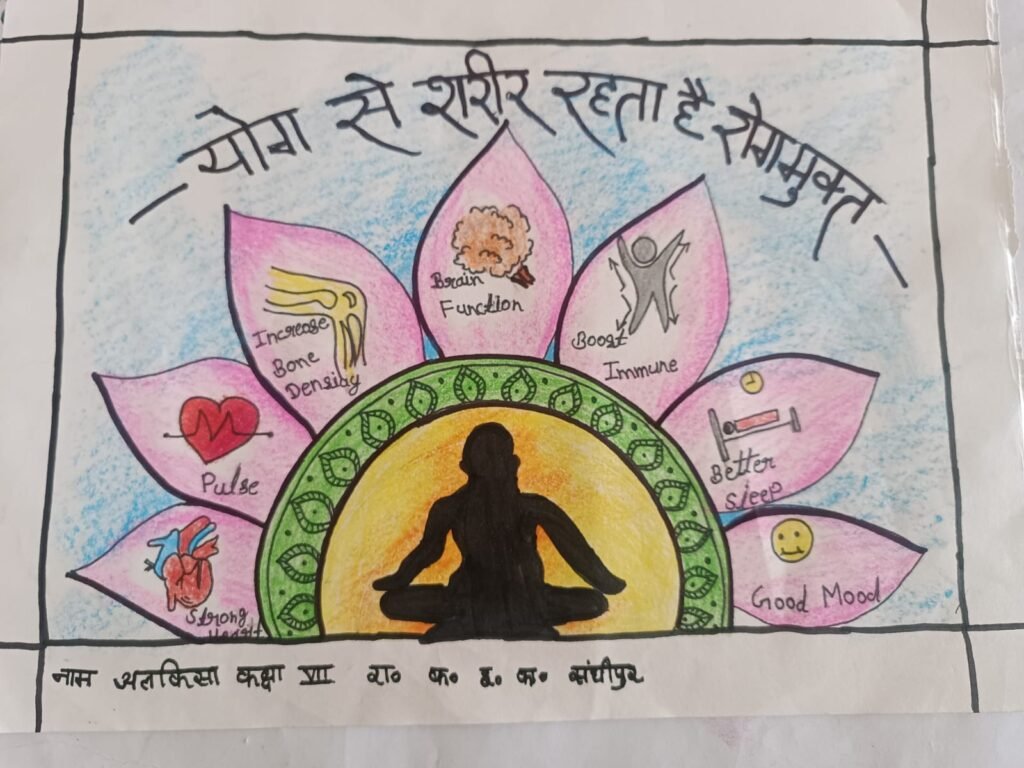 – योग से शरीर रहता है रोगमुक्त –
Brain
Function
Increase
Bone
Density
Boost
Immune
Pulse
Better
Sleep
Strong
Heart
Good Mood
नाम कक्षा VII रा० क० इ० क०